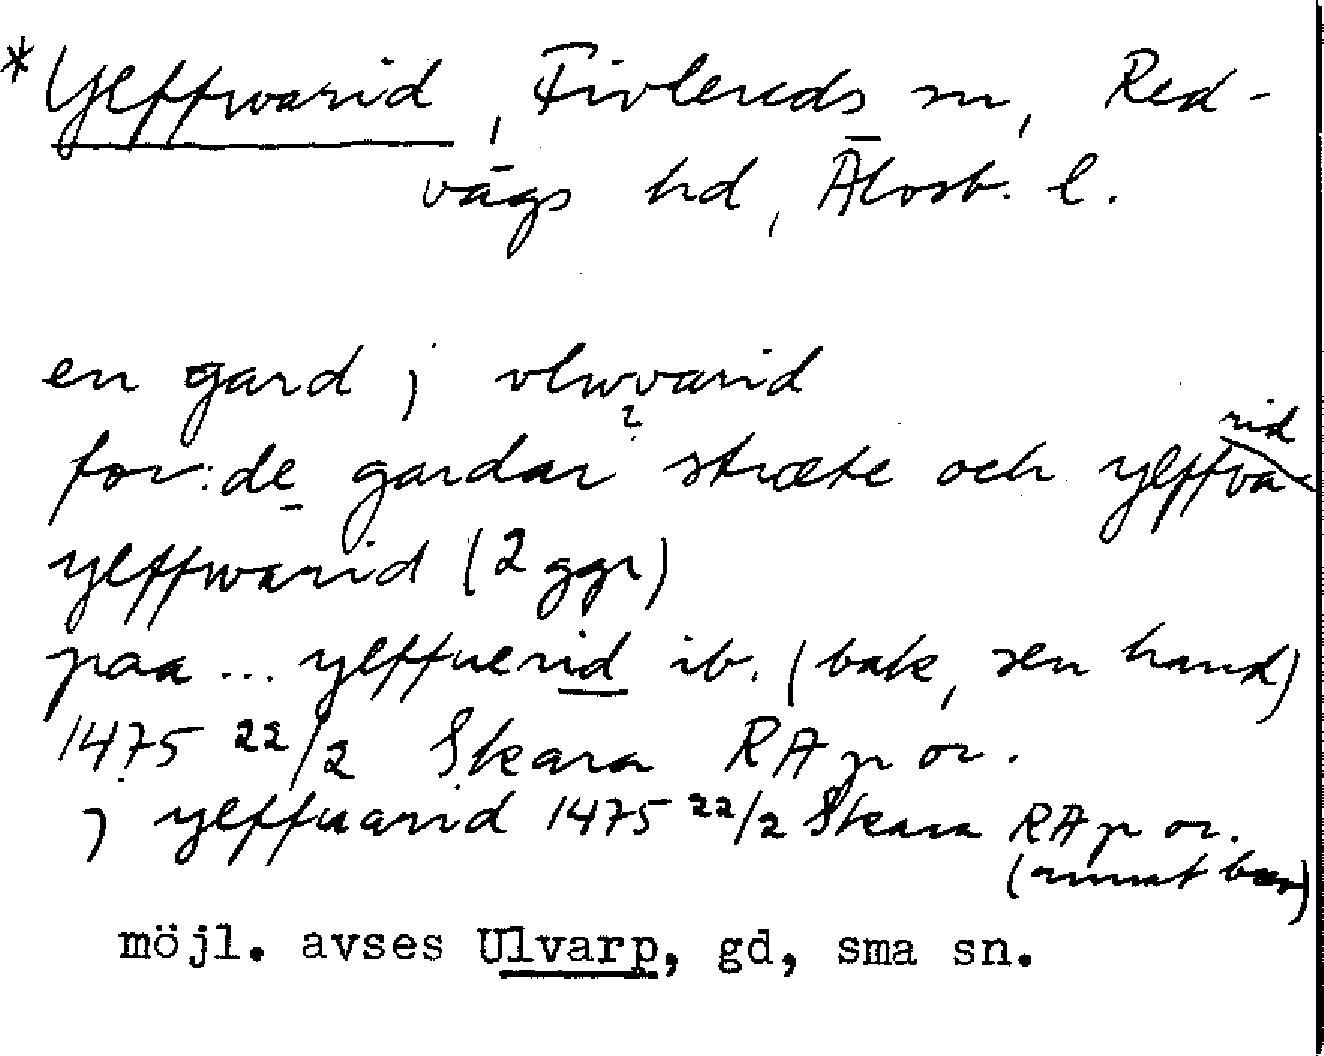 *Yleffwarid, Fivlereds sn, Red-
vägs hd, Älvsb. l.
en gard j vlwvarid
?
rid
for:de gardar stræte och yleffva-
yleffwarid (2 ggr)
paa... yleffuerid ib. (bak, sen hand)
1475 22/2 Skara RAp or.
j yleffuarid 1475 22/2 Skara RAp or.
(annat brev)
möjl. avses Ulvarp, gd, sma sn.